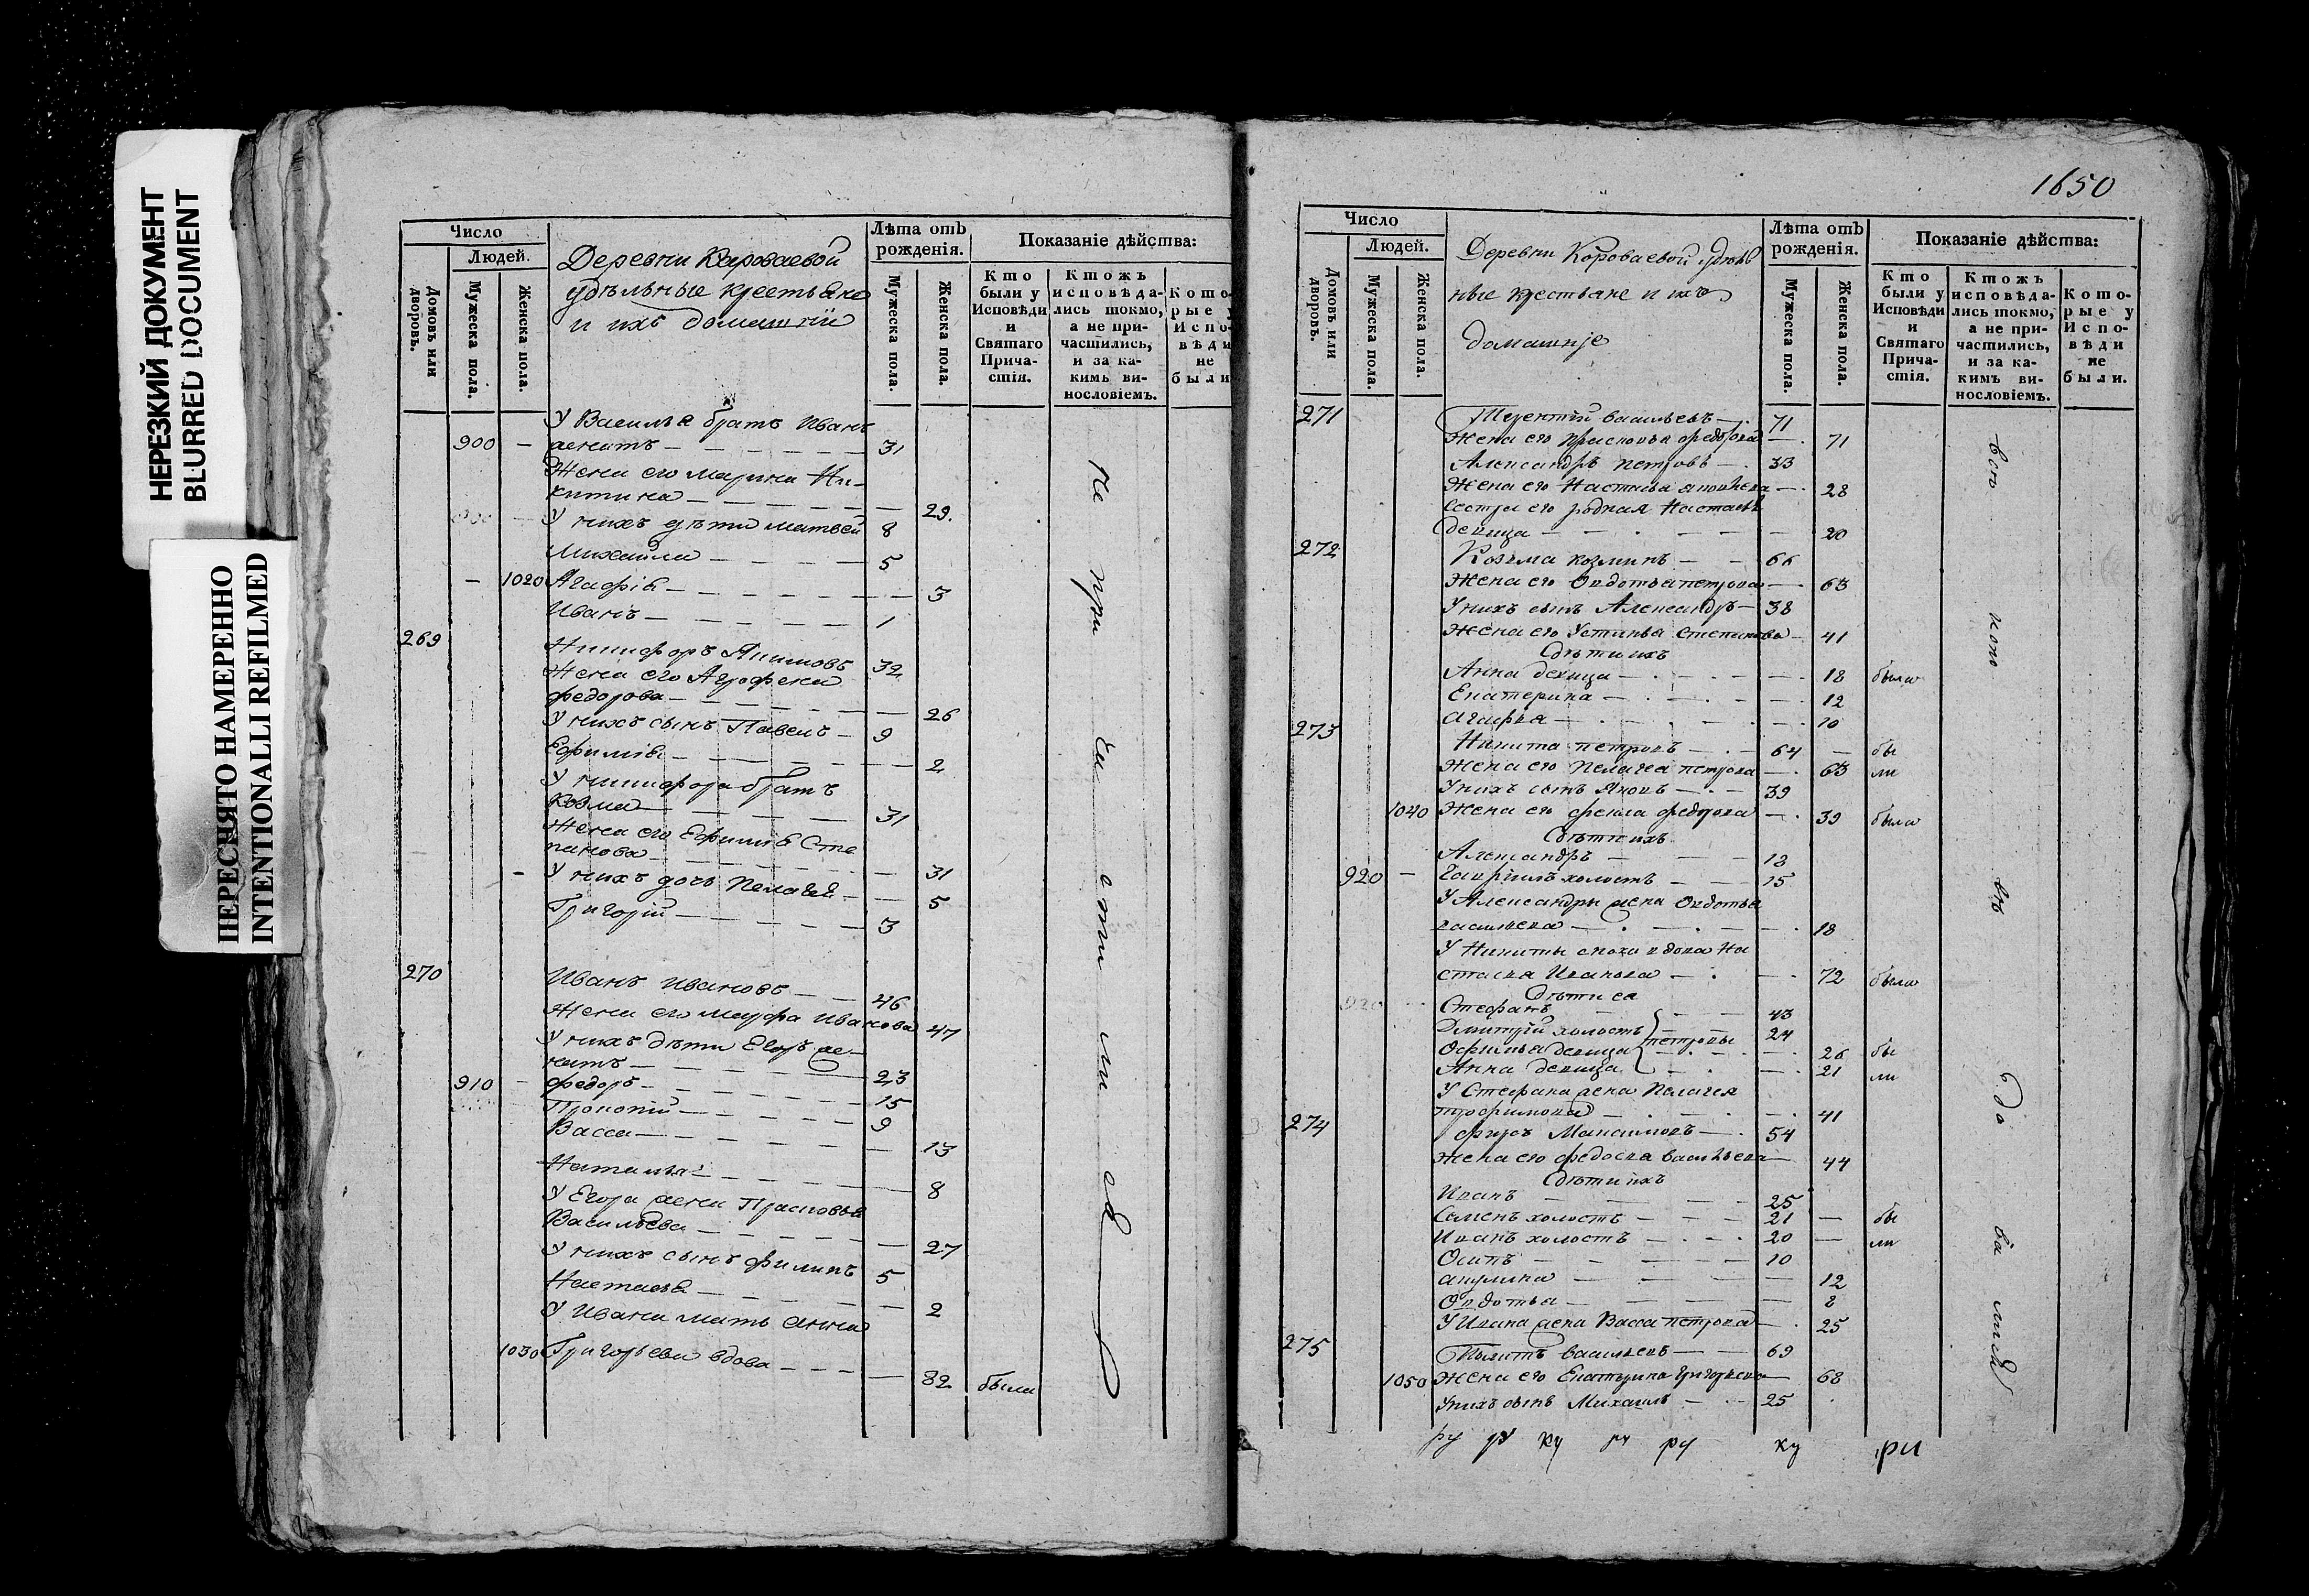 НЕРЕЗКИЙ ДОКУМЕНТ
BLURRED DOCUMENT
ПЕРЕСНЯТО НАМЕРЕННО
INTENTIONALLI REFILMED
Число
Людей.
Домовъ или дворовъ.
Мужеска пола.
Женска пола.
Деревни Короваевой
удѣльные крестьяне
и ихъ домашніи
Лѣта отъ рожденія.
Мужеска пола.
Женска пола.
Показаніе дѣйства:
Кто были у Исповѣди и Святаго Причастія.
Ктожъ исповѣдались токмо, а не причастились, и за какимъ винословіемъ.
Которые у Исповѣди не были
У Василья братъ Иванъ
900 — женатъ — 31
Жена его Марина Ни-
китина — 29.
У нихъ дѣти Матвей 8
Михайла — 5
— 1020 Агафія — 3
Иванъ — 1
269 Никифоръ Акимовъ 32
Жена его Агрофена
Федорова — 26
У нихъ сынъ Павелъ — 9
Ефимія — 2
У Никифора братъ
Козма — 31
Жена его Ефимія Сте
панова — 31
У нихъ дочь Пелагея — 5
Григорій — 3
270 Иванъ Ивановъ — 46
Жена его Марфа Иванова 47
У нихъ дѣти Егоръ же-
натъ — 23
910 — Федоръ — 15
Прокопій — 9
Васса — 13
Наталья — 8
У Егора жена Прасковья
Васильева — 27
У нихъ сынъ Филипъ 5
Настасья — 2
У Ивана мать Анна
1030 Григорьева вдова — 82 была
1650
Число
Людей.
Домовъ или дворовъ.
Мужеска пола.
Женска пола.
Деревни Короваевой удѣль
ные крестьяне и ихъ
домашніе
Лѣта отъ рожденія.
Мужеска пола.
Женска пола.
Показаніе дѣйства:
Кто были у Исповѣди и Святаго Причастія.
Ктожъ исповѣдались токмо, а не причастились, и за какимъ винословіемъ.
Которые у Исповѣди не были.
271 Терентій Васильевъ — 71
Жена его Прасковья Федорова — 71
Александръ Петровъ — 33
Жена его Настасья — 28
Сестра его родная Настасья
девица — 20
272 Козьма Козминъ — 66
Жена его Овдотья Петрова — 63
У нихъ сынъ Александръ — 38
Жена его Устинья Степанова — 41
дѣти ихъ
Анна девица — 18 была
Екатерина — 12
Агафья — 10
273 Никита Петровъ — 64 — бы
Жена его Пелагея Петрова — 63 ли
У нихъ сынъ Яковъ — 39
1040 Жена его Фекла Федорова — 39 была
дѣти ихъ
Александръ — 18
920 — Гавріилъ холостъ — 15
У Александры жена Овдотья
Васильева — 18
У Никиты сноха вдова На
стасья Иванова — 72 была
дѣти ея
Стефанъ — 43
Дмитрій холостъ — 24
Петровы
Офимья девица — 26 бы
Анна девица — 21 ли
У Стефана жена Пелагея
Трофимова — 41
274 Фирсъ Максимовъ — 54
Жена его Федосья Васильева — 44
дѣти ихъ
Иванъ — 25
Семенъ холостъ — 21 — бы
Иванъ холостъ — 20 — ли
Осипъ — 10
Акулина — 12
Овдотья — 2
У Ивана жена Васса Петрова — 25
275 Васильевъ — 69
1050 Жена его Екатерина Григорьева — 68
У нихъ сынъ Михаилъ — 25